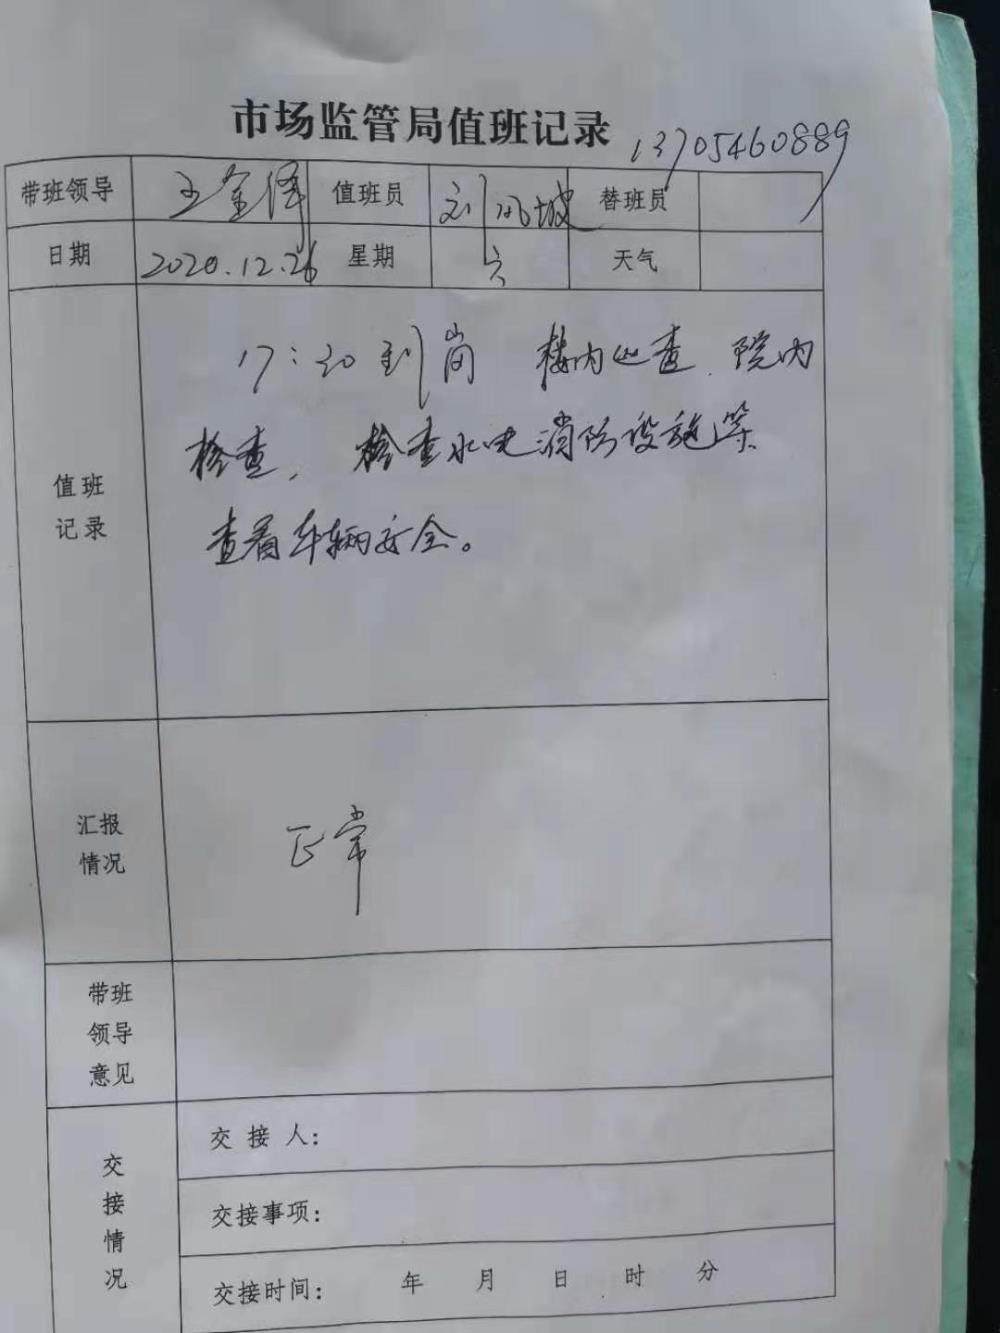 市场监管局值班记录
13705460889
带班领导 王金泽 值班员 刘风坡 替班员
日期 2020.12.26 星期 六 天气
值班
记录
17:30到岗 楼内巡查.院内
检查, 检查水电消防设施等
查看车辆安全。
汇报
情况
正常
带班
领导
意见
交接情况
交接人:
交接事项:
交接时间: 年 月 日 时 分